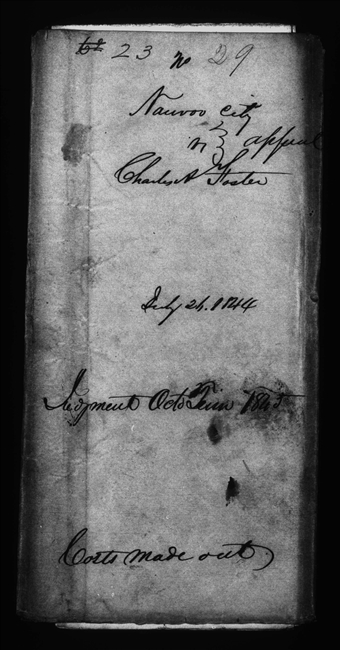 23 no 29
Nauvoo city
vs } appeal
Charles A Foster
July 26. 1844
Judgment Octo Term 1845
Costs made out